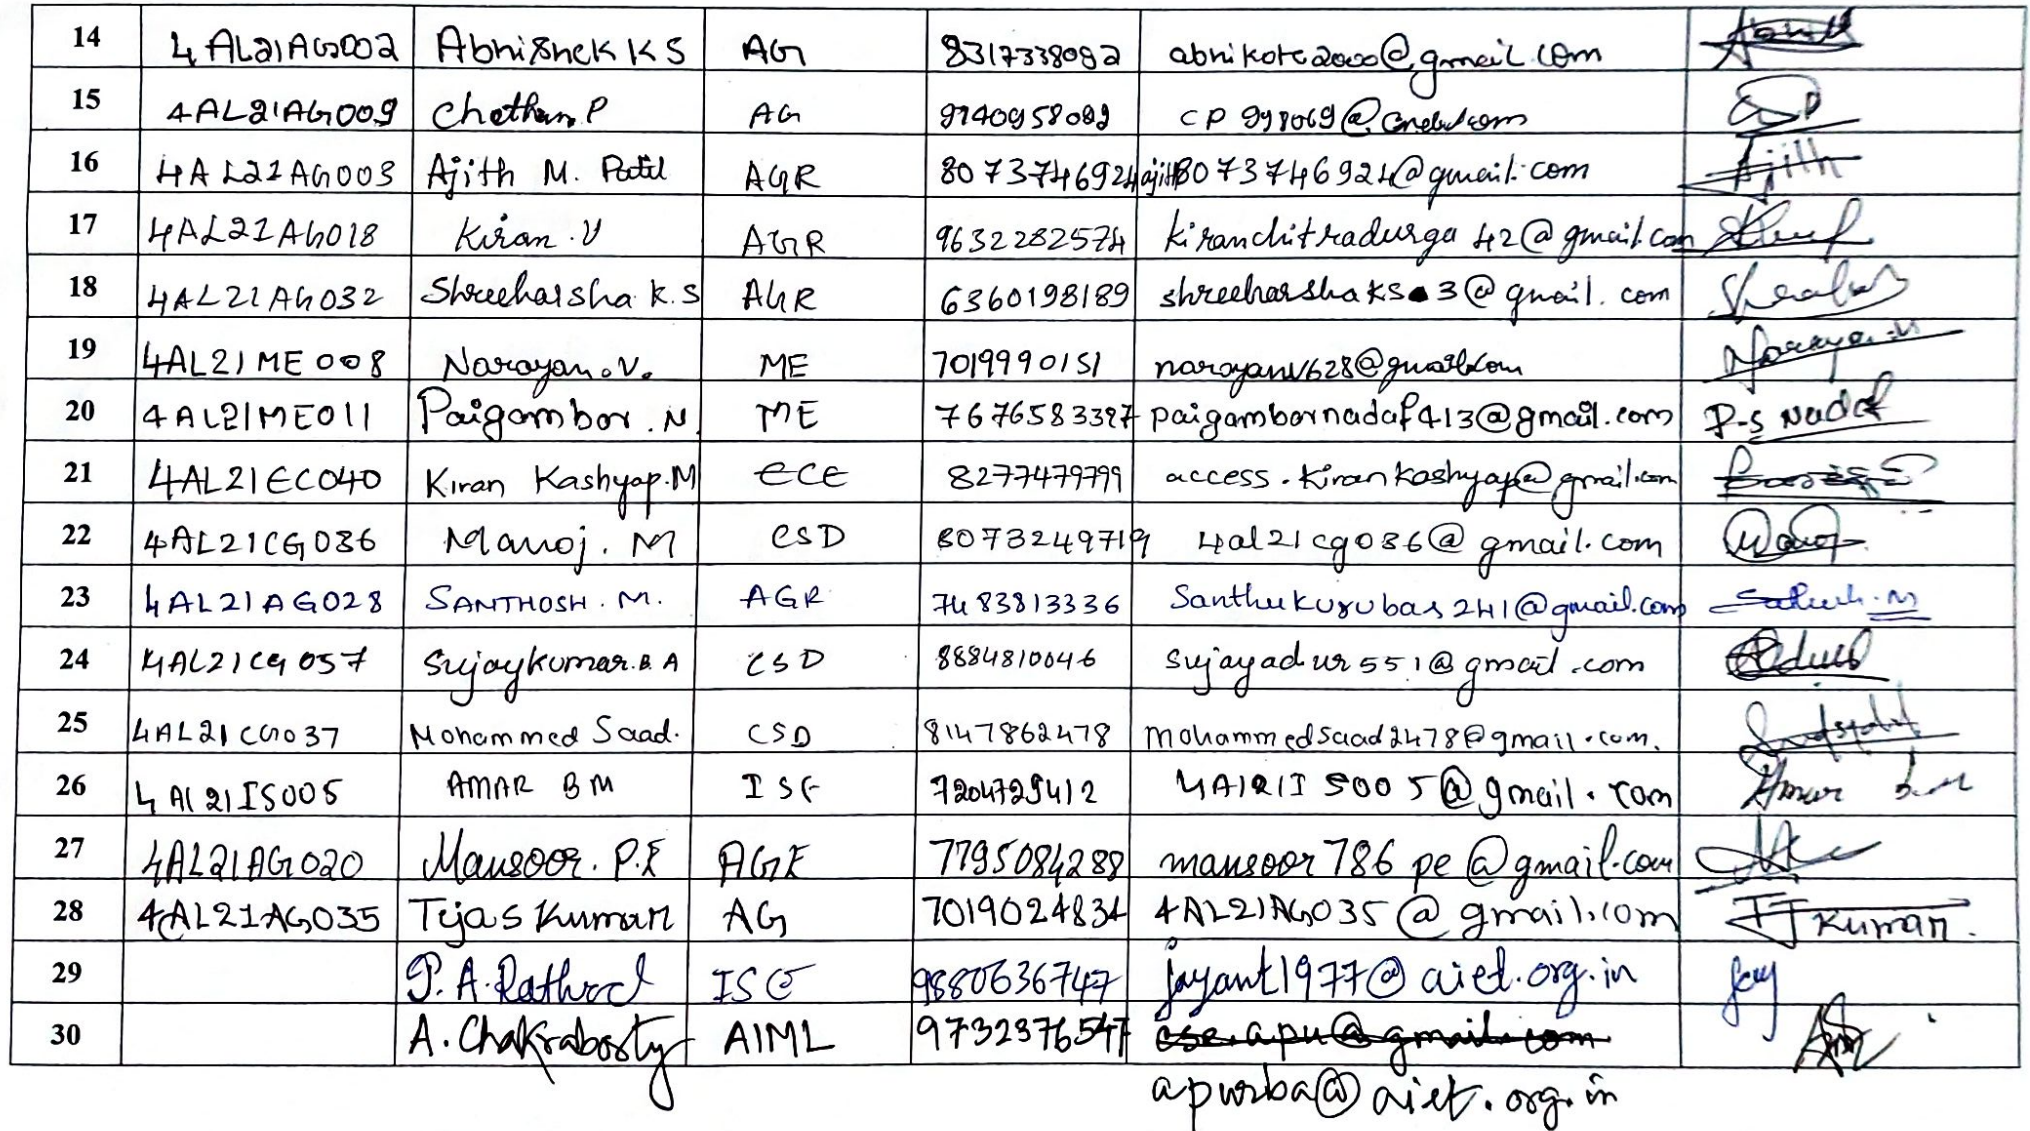 14 4AL21AG002 Abhishek K S AG 8317338092 abhikote2000@gmail.com
15 4AL21AG009 Chethan P AG 9740958099 cp998069@gmail.com
16 4AL21AG003 Ajith M. Patil AGR 8073746924 ajith8073746924@gmail.com Ajith
17 4AL21AG018 Kiran.V AGR 9632282574 kiranchitradurga42@gmail.com
18 4AL21AG032 Shreeharsha K.S AGR 6360198189 shreeharshaks3@gmail.com
19 4AL21ME008 Narayan.V. ME 7019990151 narayanv628@gmail.com Narayan.V
20 4AL21ME011 Paigambar.N ME 7676583397 paigambarnadaf413@gmail.com P-S Nadaf
21 4AL21EC040 Kiran Kashyap.M ECE 8277479799 access.kirankashyap@gmail.com
22 4AL21CG036 Manoj. M CSD 8073249719 4al21cg036@gmail.com Manoj
23 4AL21AG028 SANTHOSH.M. AGR 7483813336 Santhukurubas241@gmail.com
24 4AL21CG057 Sujaykumar.B.A CSD 8884810046 sujayadur551@gmail.com
25 4AL21CG037 Mohammed Saad. CSD 8147862478 mohammedsaad2478@gmail.com.
26 4Al21IS005 AMAR BM ISE 7204729412 4Al21IS005@gmail.com Amar
27 4AL21AG020 Mansoor. P.E AGE 7795084288 mansoor786pe@gmail.com
28 4AL21AG035 Tejas Kumar AG 7019024834 4AL21AG035@gmail.com TJ Kumar.
29 J.A.Rathod ISE 9880636747 jayant1977@aiet.org.in Jay
30 A. Chakraborty AIML 9732376547 cse.apu@gmail.com
apurba@aiet.org.in